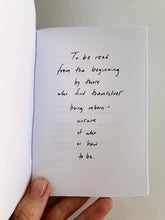 To be read
from the beginning
by those
who find themselves
being reborn -
unsure
of who
or how
to be.